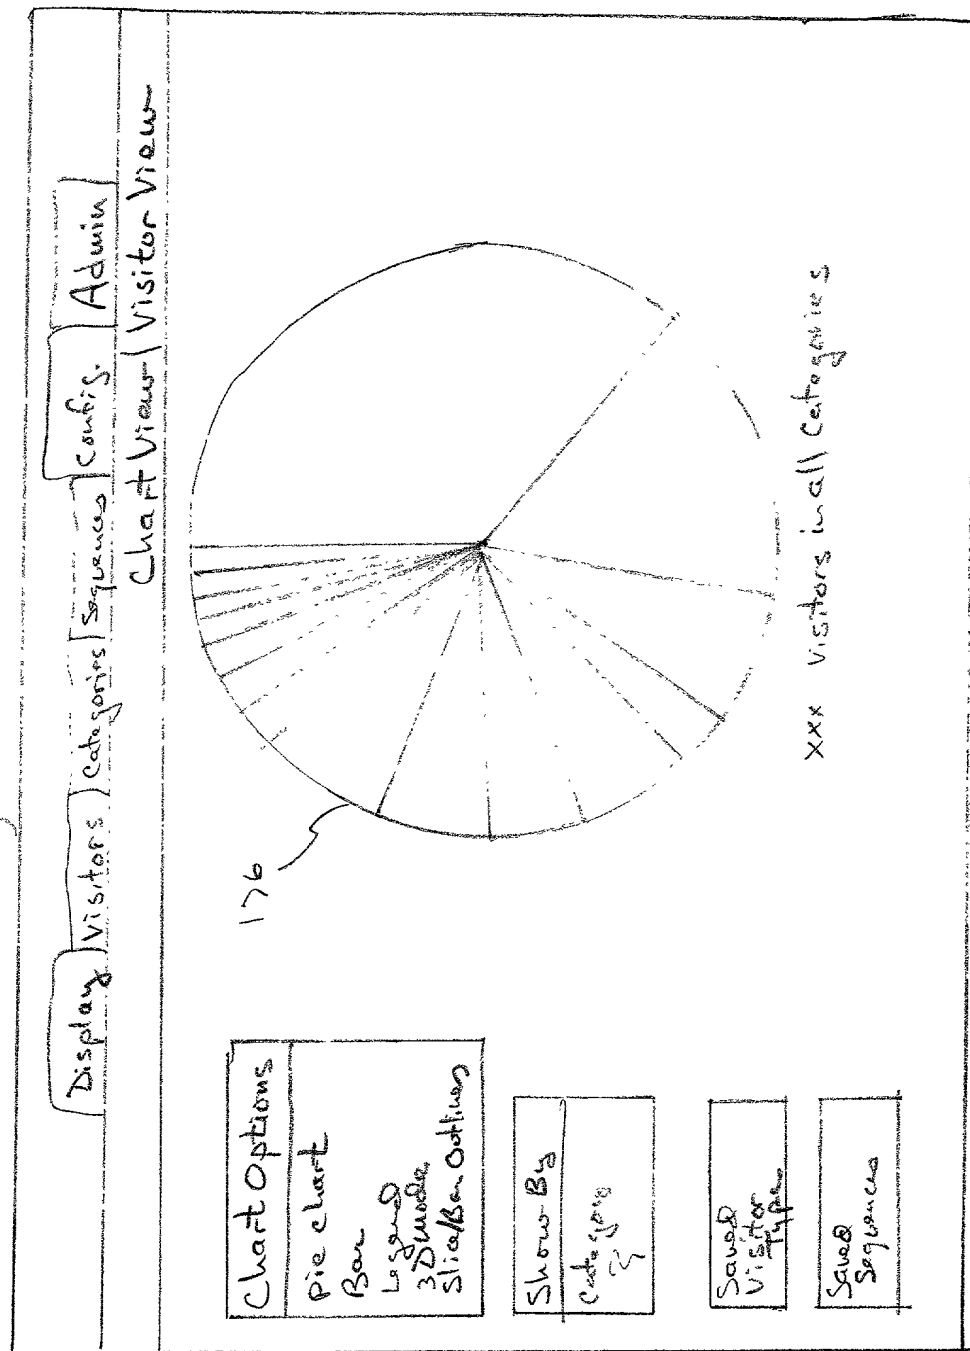 Display | Visitors | Categories | Sequences | Config. | Admin
Chart View | Visitor View
Chart Options
Pie chart
Bar
Legend
3D mode
Slice/Bar Outlines
Show By
Category
Saved
Visitor
Type
Saved
Sequences
176
xxx visitors in all categories